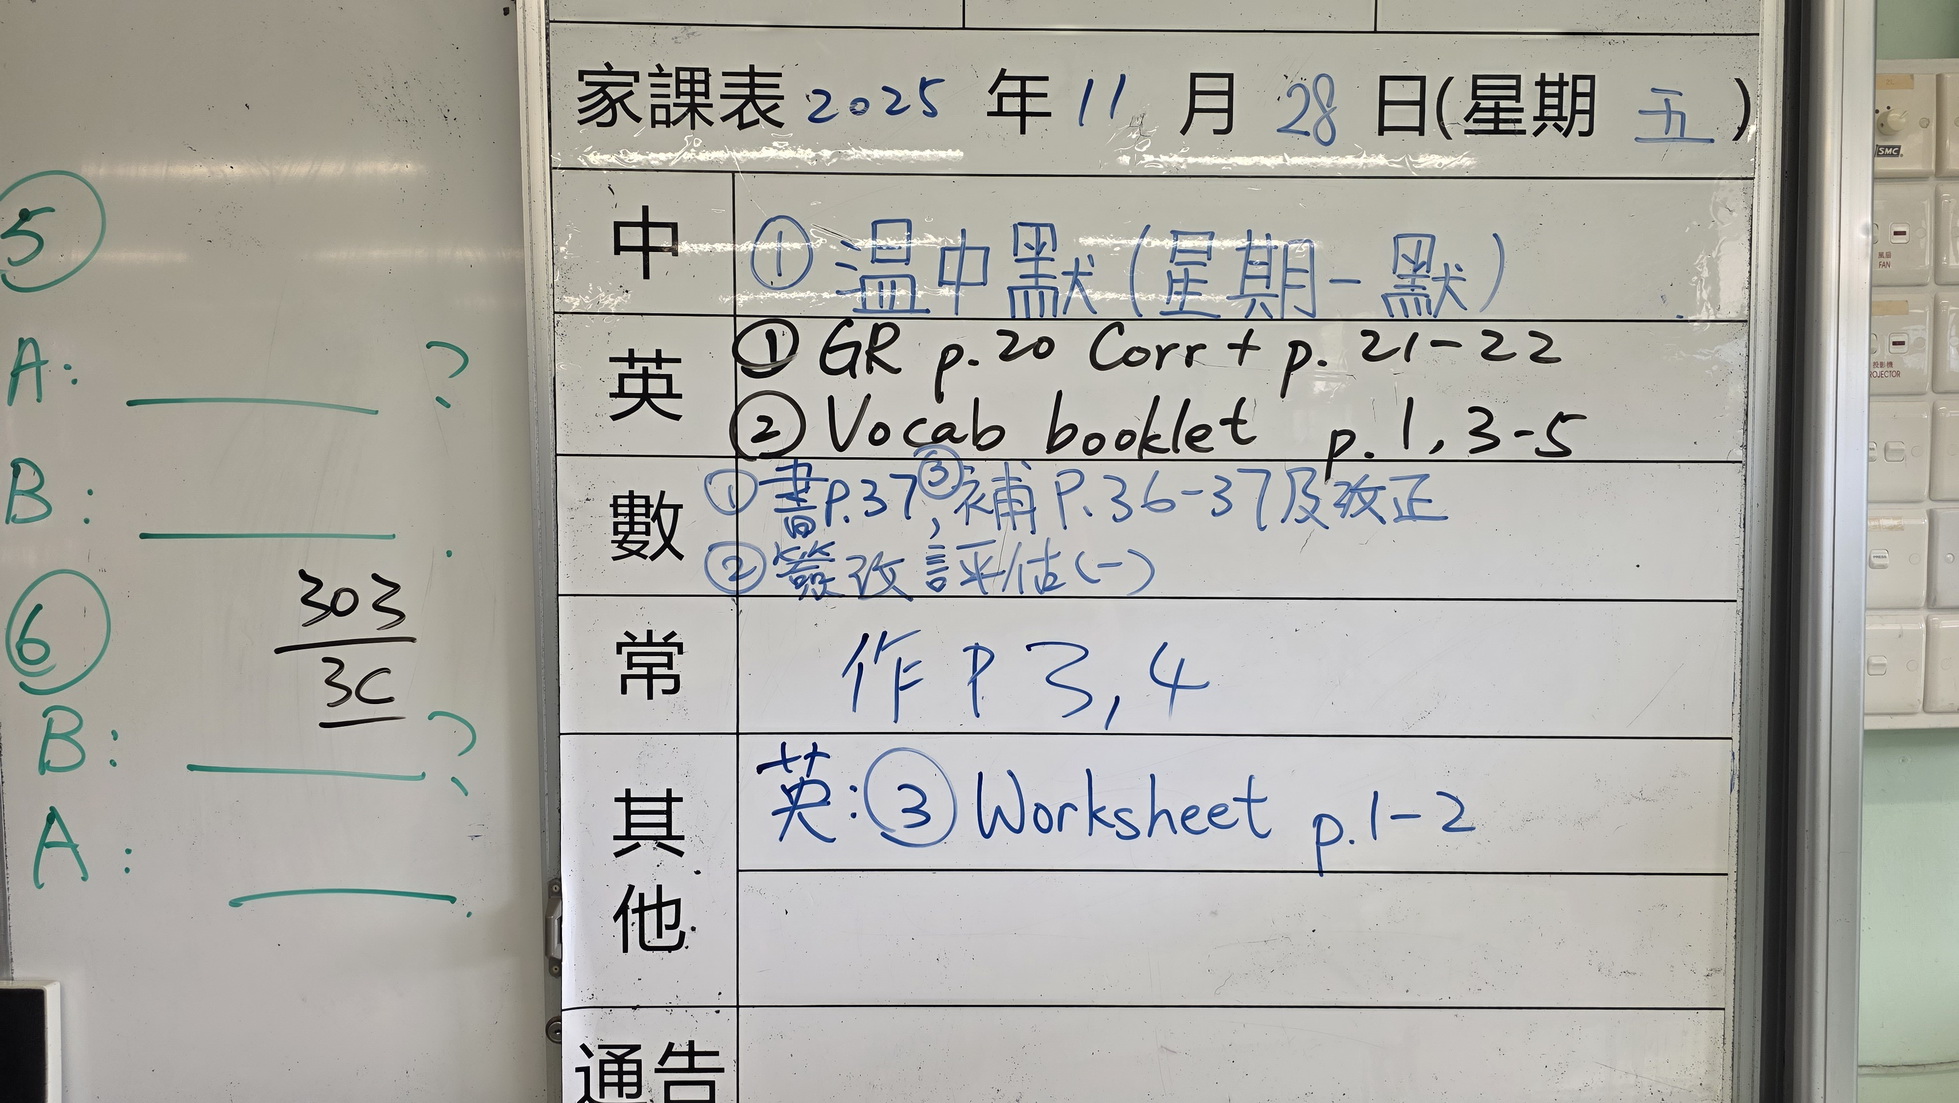 家課表 2025 年 11 月 28 日(星期 五)
中 ① 溫中默(星期一默)
英 ① GR p.20 Corr + p. 21-22
② Vocab booklet p.1, 3-5
數 ① 書P.37, ③補P.36-37及改正
② 簽改評估(一)
常 作 P 3, 4
其他 英: ③ Worksheet p.1-2
通告
⑤
A: ?
B: .
⑥
303
3C
B: ?
A: .
SMC
風扇
FAN
投影機
PROJECTOR